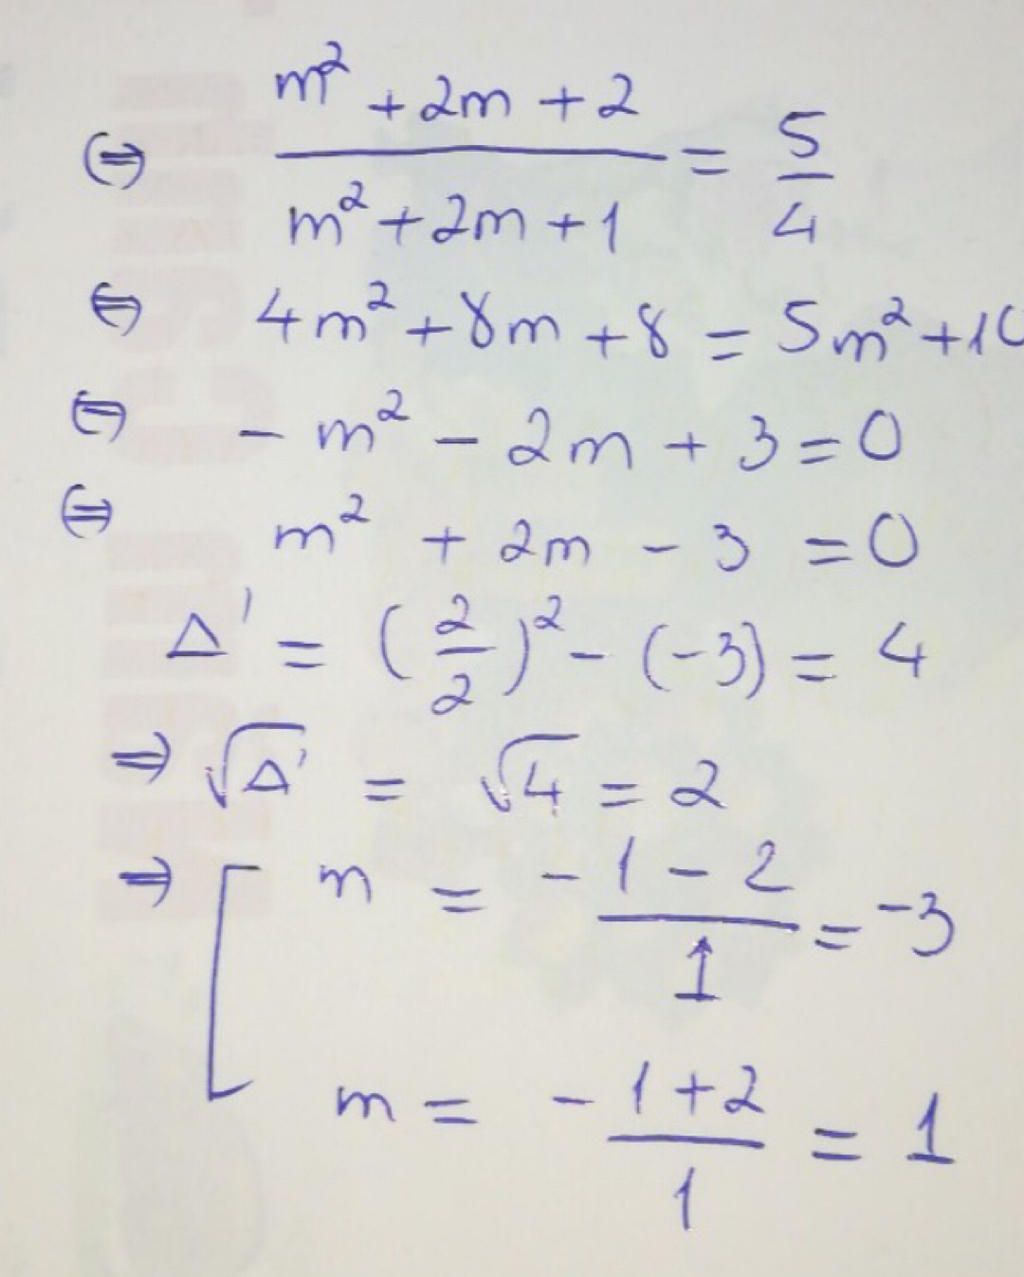 ⇔ (m² + 2m + 2)/(m² + 2m + 1) = 5/4
⇔ 4m² + 8m + 8 = 5m² + 10
⇔ - m² - 2m + 3 = 0
⇔ m² + 2m - 3 = 0
Δ' = (2/2)² - (-3) = 4
⇒ √Δ' = √4 = 2
⇒ [ m = (-1 - 2)/1 = -3
m = (-1 + 2)/1 = 1